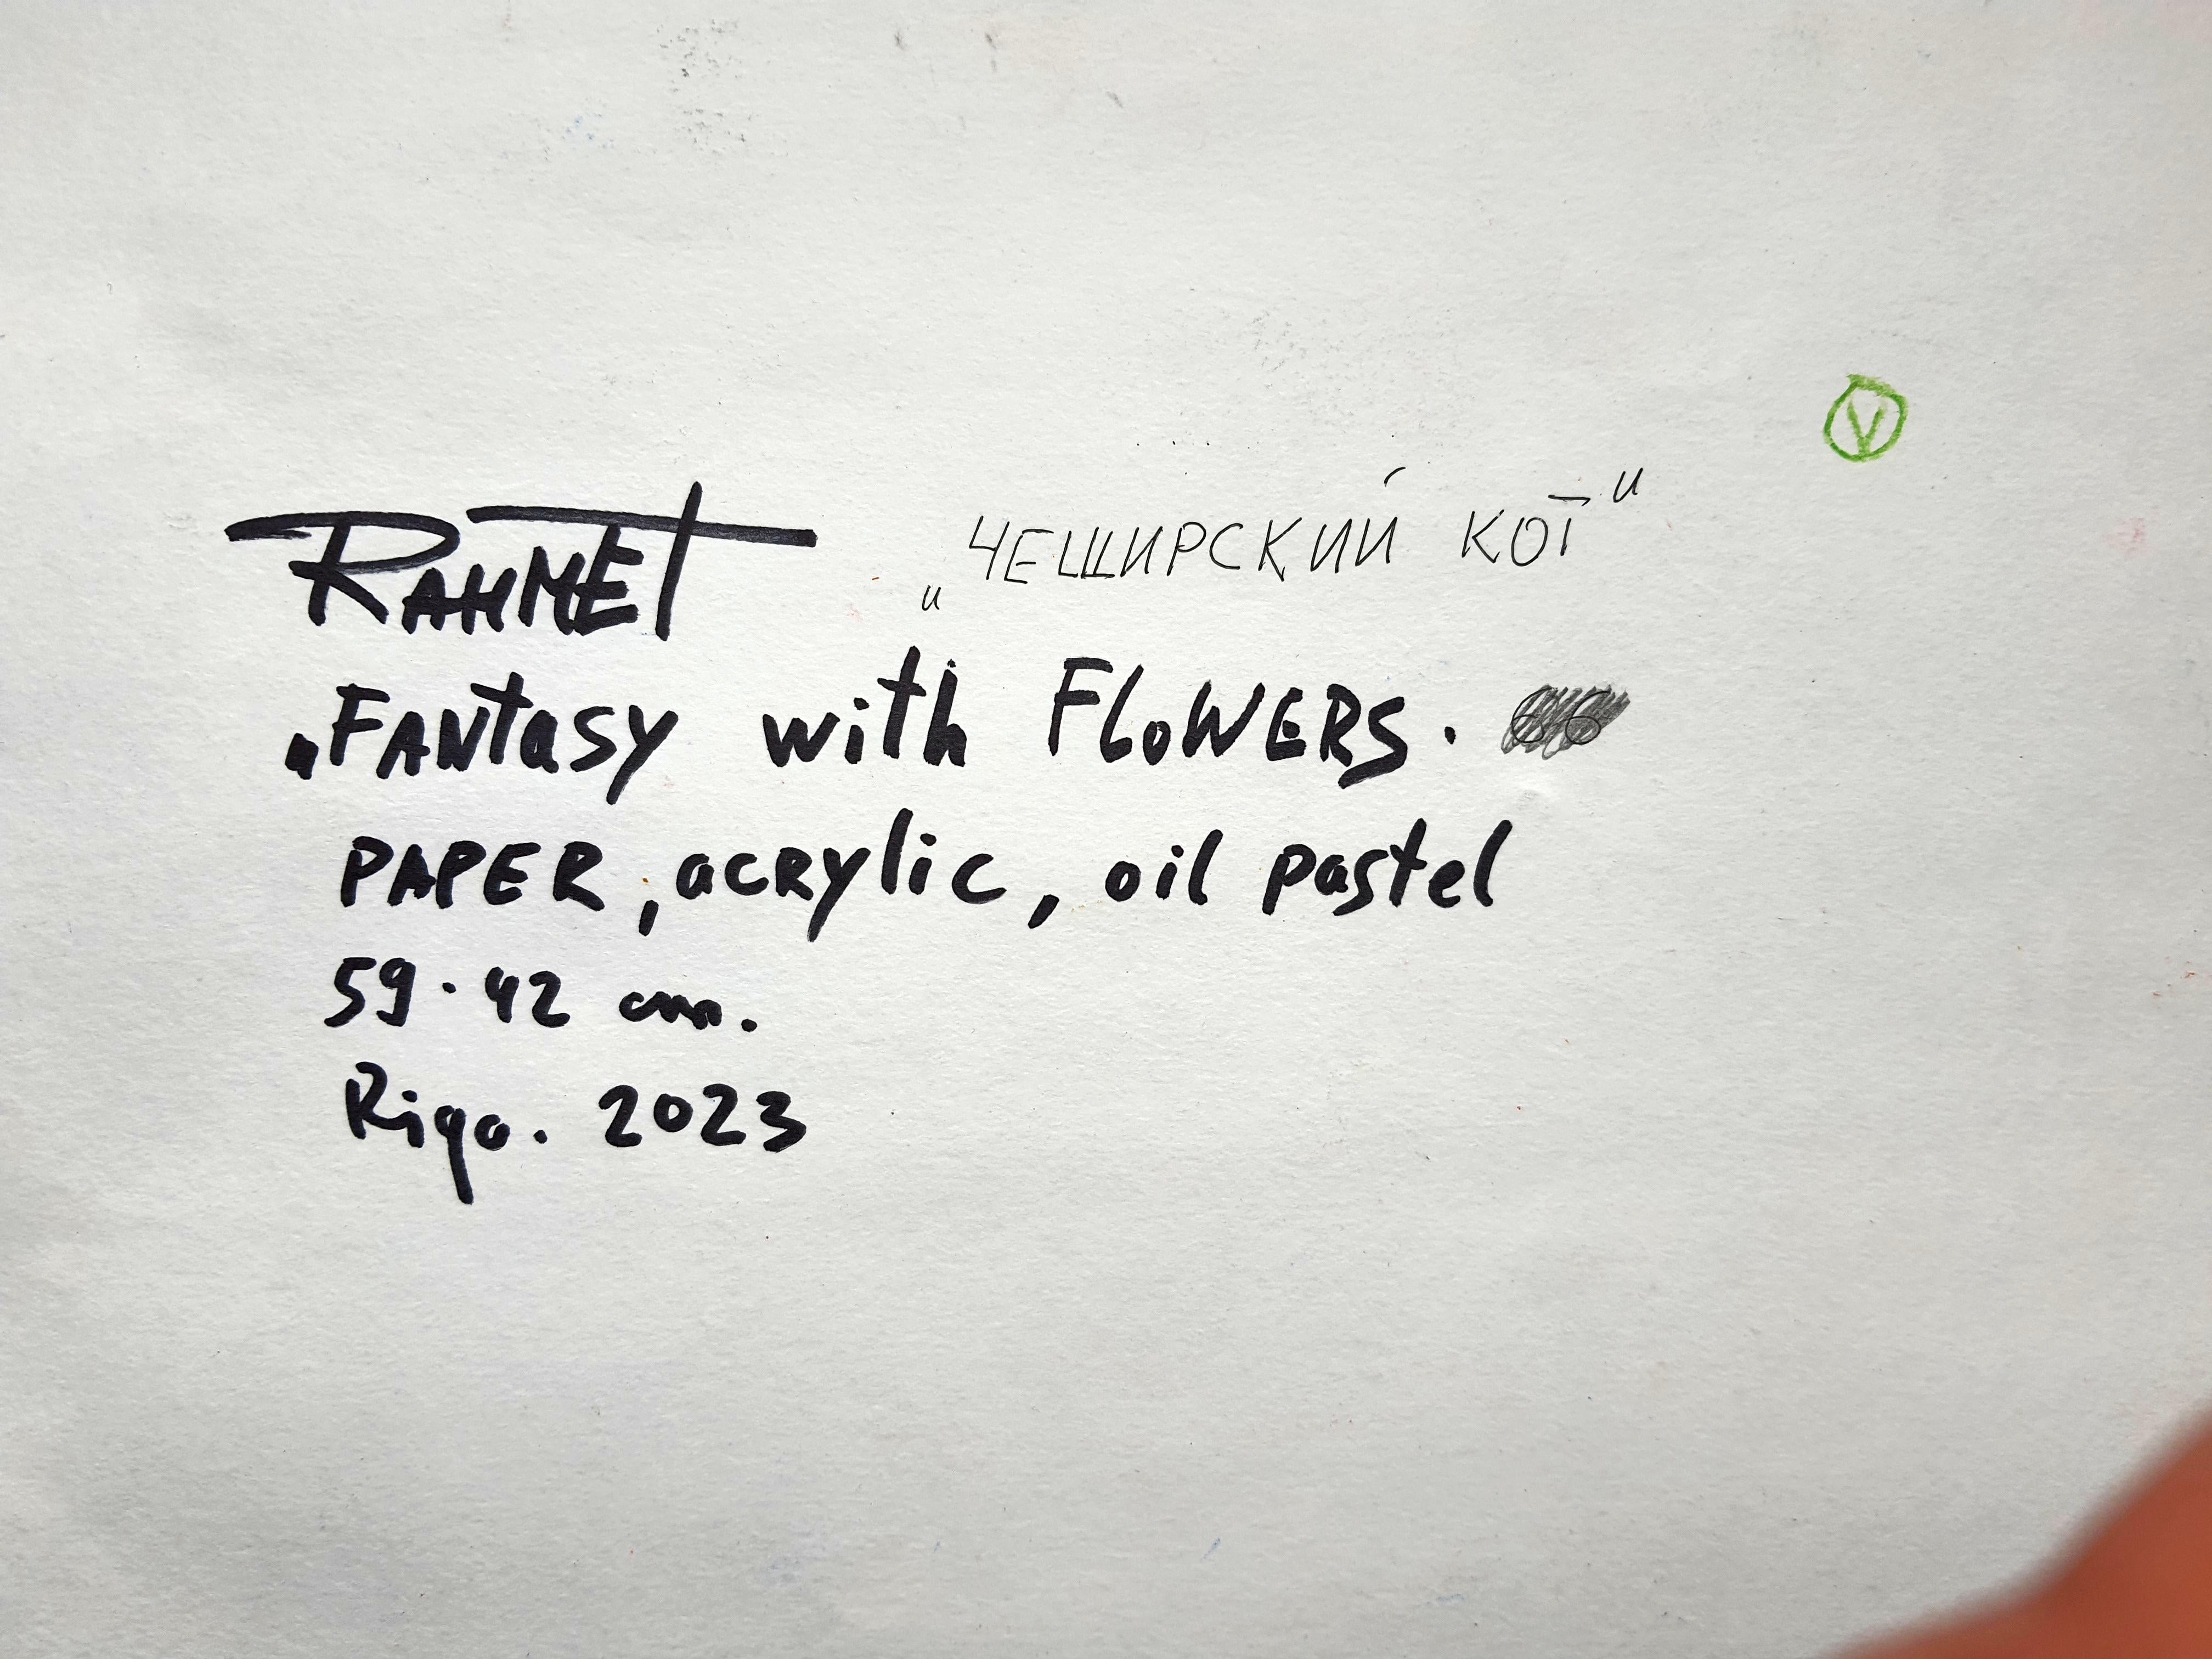 RAHMET
„ЧЕШИРСКИЙ КОТ"
„FANtasy with FLoWERS.
PAPER, acRylic, oil pastel
59·42 cm.
Riga. 2023
V